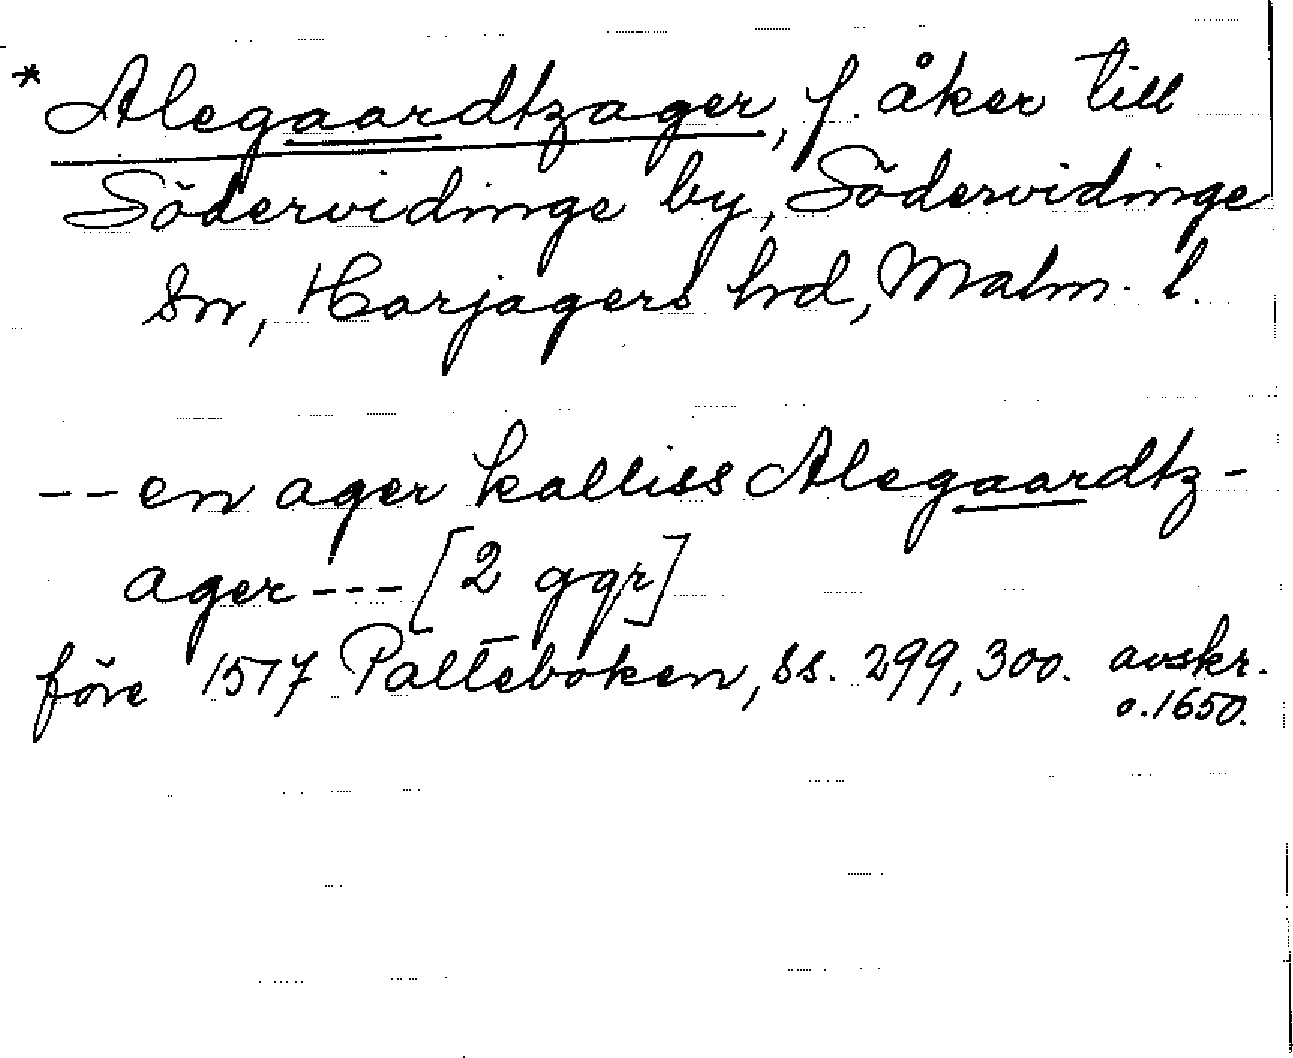 * Alegaardtzager, f. åker till
Södervidinge by, Södervidinge
sn, Harjagers hd, Malm. l.
-- en ager kalliss Alegaardtz-
ager --- [2 ggr]
före 1517 Palteboken, ss. 299, 300. avskr.
o. 1650.